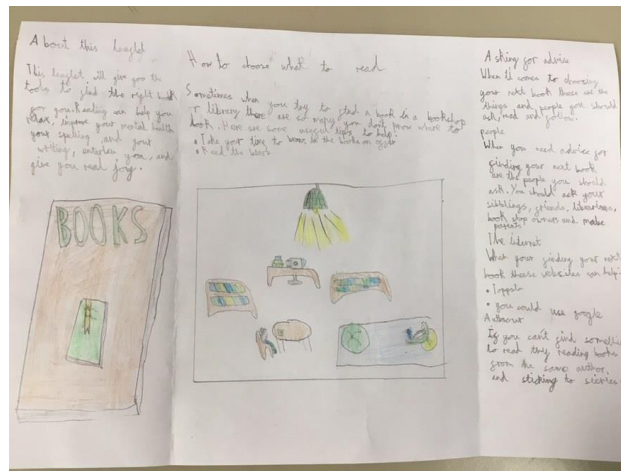 About this leaflet
This leaflet will give you the
tools to find the right book
for you. Reading can help you
relax, improve your mental health
your spelling and your
writing, entertain you, and
give you read joy.
BOOKS
How to choose what to read
Sometimes when you try to find a book in a bookshop
or library there are so many you don't know where to
look. Here are some tips to help!
• Take your time to the books on offer
• Read the blurb
Asking for advice
When it comes to choosing
your next book these are the
things and people you should
ask, read and follow.
people
When you need advice for
finding your next book
are the people you should
ask. You should ask your
sibblings, friends, librarians,
book shop owners and maybe
parents
The internet
When your finding your next
book these websites can help
•
• you could use google
If you can't find somethi
to read try reading books
from the same author.
and sticking to series